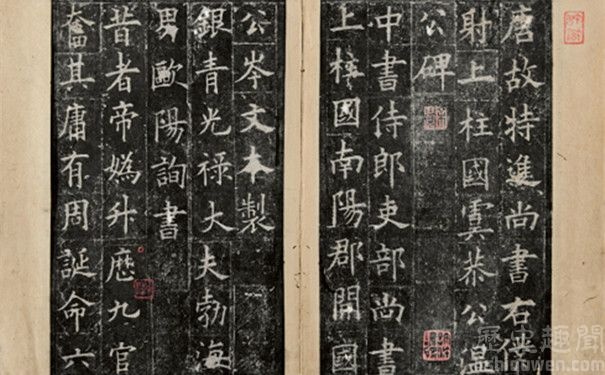 唐故特進尚書右
射上柱國虞恭公溫
公碑
中書侍郎吏部尚書
上柱國南陽郡開國
公岑文本製
銀青光祿大夫勃海
男歐陽詢書
昔者帝媯升歷九官
奮其庸有周誕命六
歷史趣聞
lishiquwen.com